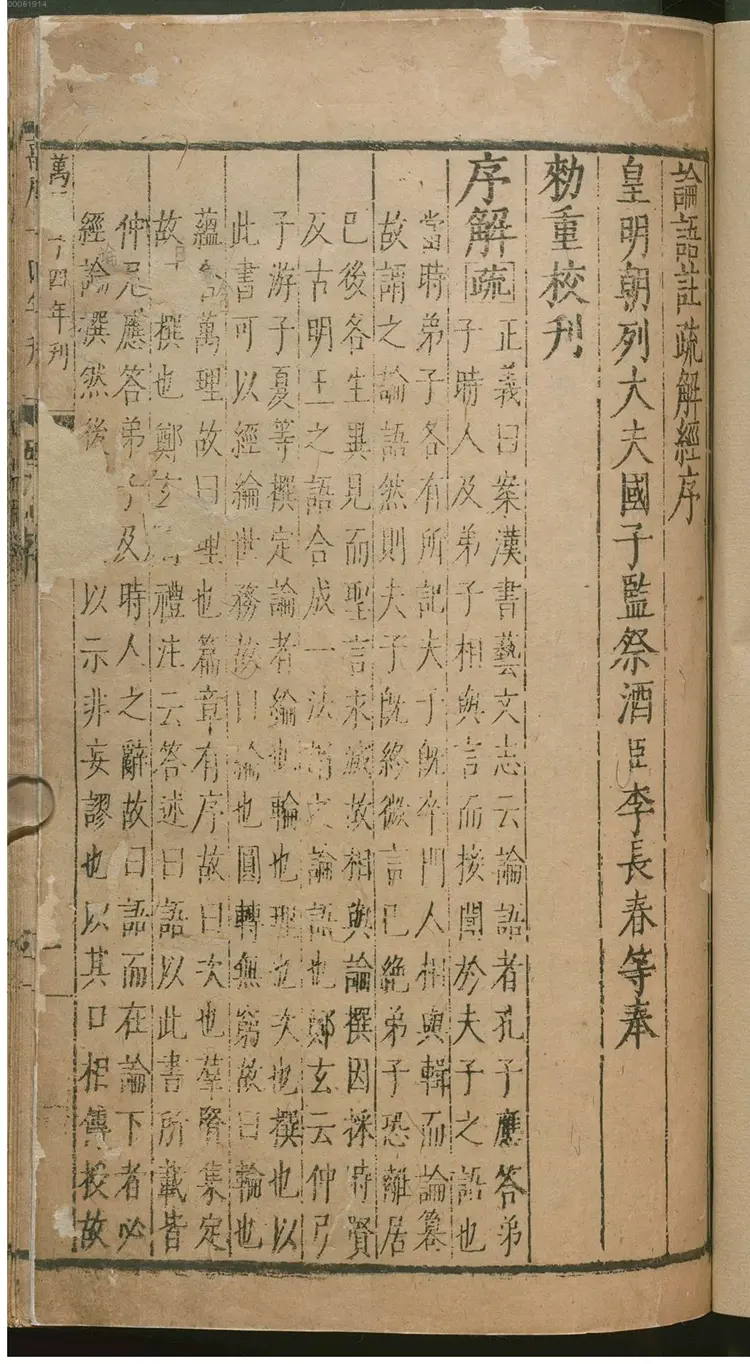 00061914
論語註疏解經序
皇明朝列大夫國子監祭酒臣李長春等奉
勑重校刊
序解疏
正義曰案漢書藝文志云論語者孔子應答弟
子時人及弟子相與言而接聞於夫子之語也
當時弟子各有所記夫子既卒門人相與輯而論篹
故謂之論語然則夫子既終微言已絶弟子恐離居
已後各生異見而聖言永滅故相與論撰因採時賢
及古明王之語合成一法謂之論語也鄭玄云仲弓
子游子夏等撰定論者綸也輪也理也次也撰也以
此書可以經綸世務故曰綸也圓轉無窮故曰輪也
蘊含萬理故曰理也篇章有序故曰次也羣賢集定
故撰也鄭玄禮注云答述曰語以此書所載皆
仲尼應答弟子及時人之辭故曰語而在論下者必
經論撰然後以示非妄謬也以其口相傳授故
萬十四年刊